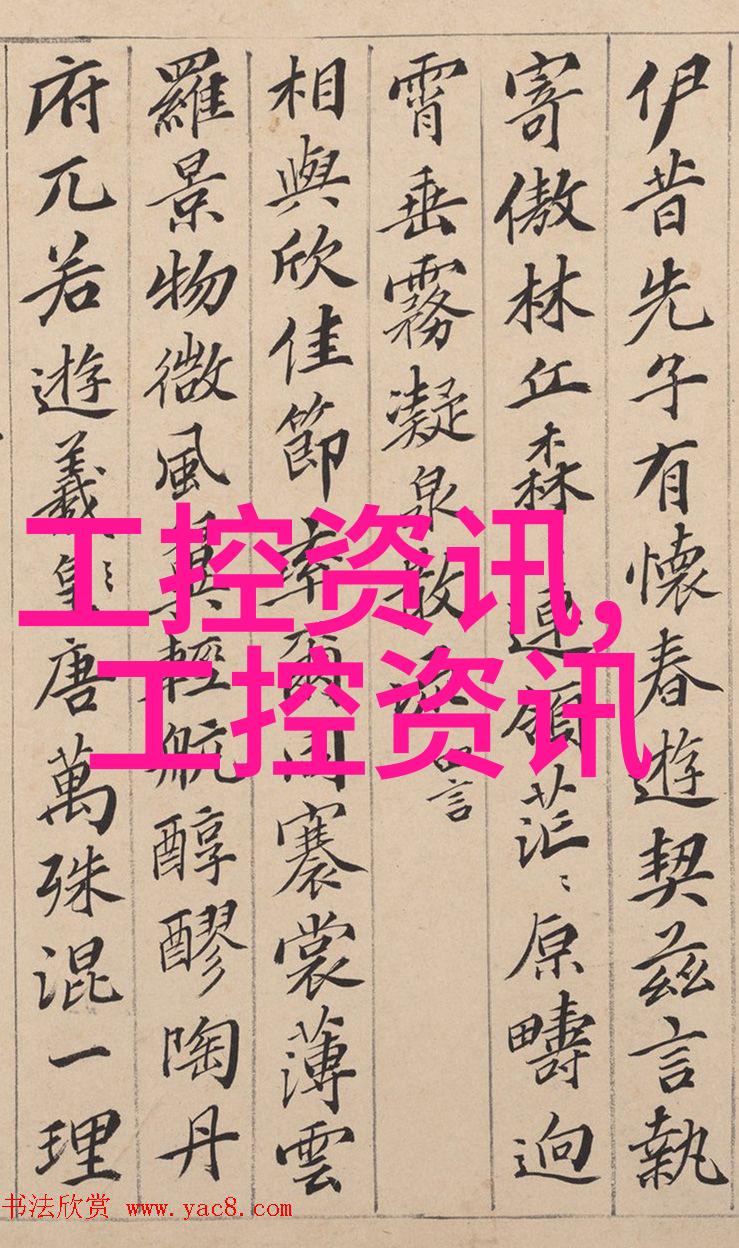 伊昔先子有懷春遊契茲言執
寄傲林丘森連領茫〻原疇迥
霄垂霧凝泉散
相與欣佳節率爾同褰裳薄雲
羅景物微風翼輕航醇醪陶丹
府兀若遊羲皇唐萬殊混一理
工控资讯,
工控资讯
书法欣赏 www.yac8.com